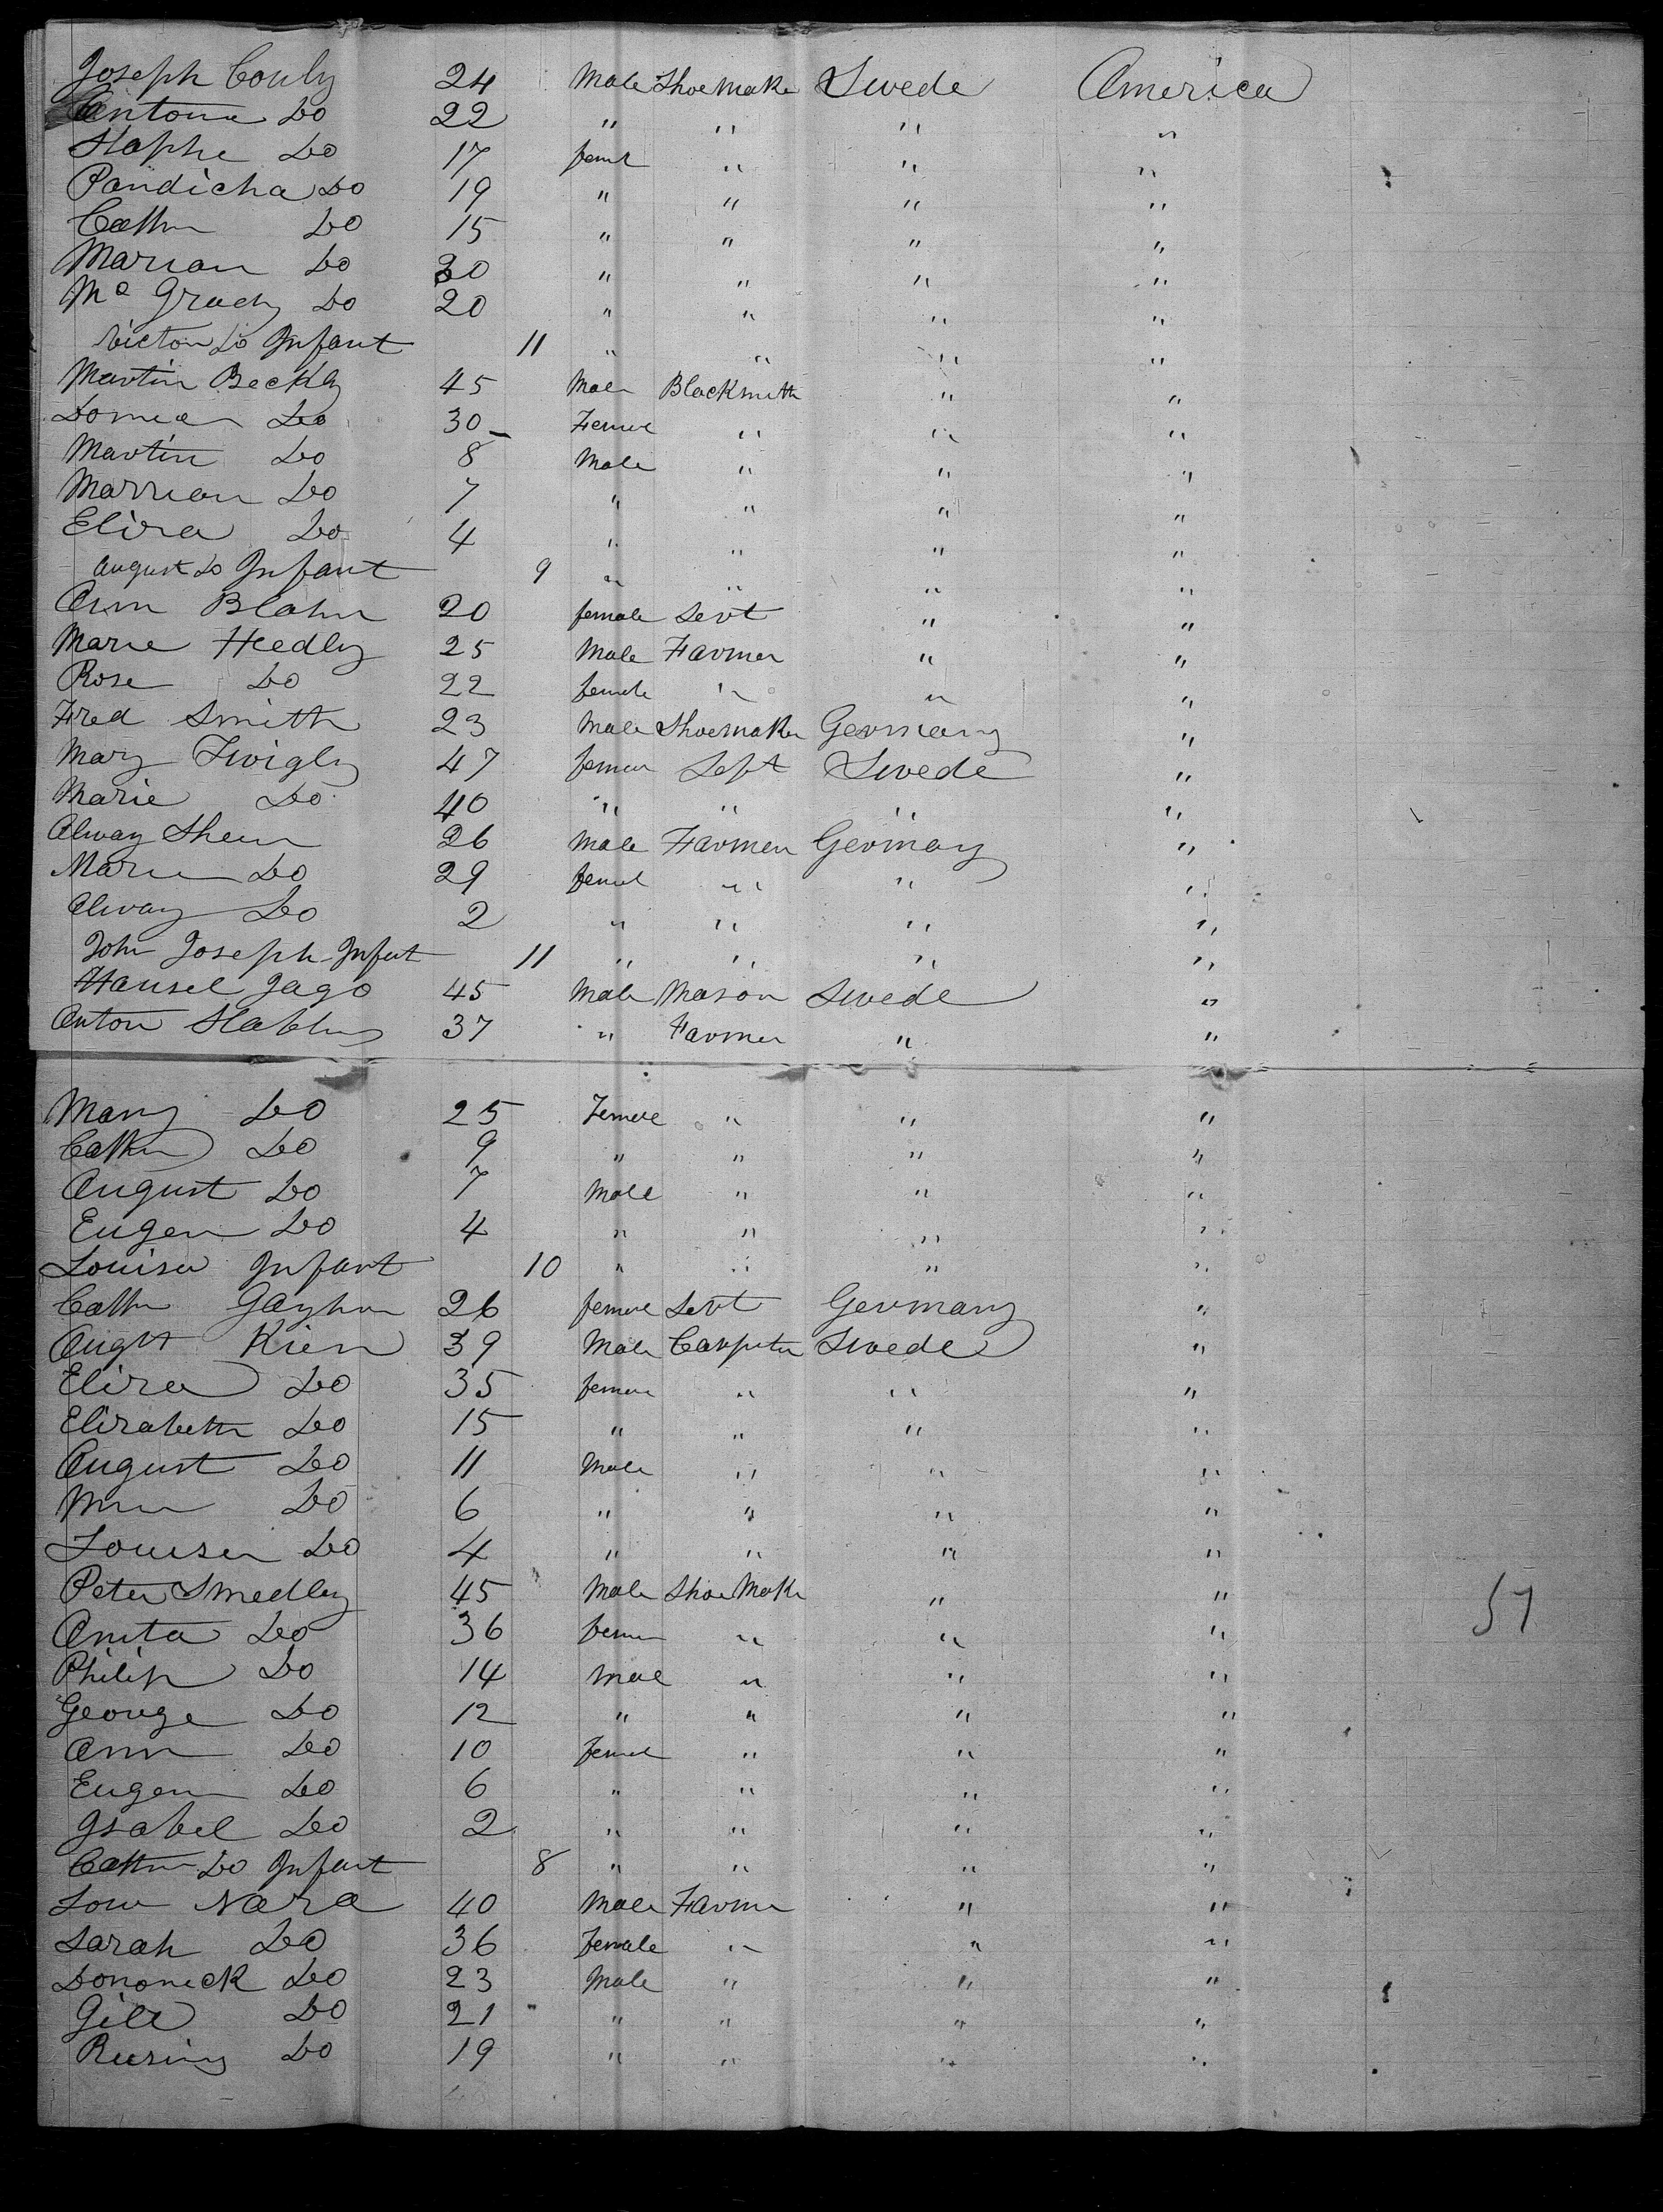 Joseph Couly 24 Male Shoemake Swede America
Antone Do 22 " " " "
Stophe Do 17 feml " " "
Pandicha Do 19 " " " "
Cathn Do 15 " " " "
Marian Do 30 " " " "
Mc Grady Do 20 " " " "
Victon Do Infant 11 " " " "
Martin Beckly 45 Male Blacksmith " "
Domea Do 30 Femel " " "
Martin Do 8 Male " " "
Marrian Do 7 " " " "
Eliza Do 4 " " " "
August Do Infant 9 " " " "
Ann Blahn 20 female Sevt " "
Marie Hedly 25 Male Farmer " "
Rose Do 22 female " " "
Fred Smith 23 Male Shoemaker Germany "
Mary Zwigly 47 femer Sevt Swede "
Marie Do 40 " " " "
Alway Sheen 26 Male Farmer Germay "
Marie Do 29 femel " " "
Alway Do 2 " " " "
John Joseph Infet 11 " " " "
Hansel Jago 45 Male Mason Swede "
Anton 37 " Farmer " "
Mary Do 25 Femele " " "
Cathn Do 9 " " " "
August Do 7 Male " " "
Eugen Do 4 " " " "
Louisa Infant 10 " " " "
Cathn Gayhn 26 femele Sevt Germany "
Augst Kien 39 Male Carpeter Swede "
Eliza Do 35 femer " " "
Elizabeth Do 15 " " " "
August Do 11 Male " " "
Do 6 " " " "
Louisen Do 4 " " " "
Peter Smedley 45 Male Shoe Make " "
Anita Do 36 femer " " "
Philip Do 14 Male " " "
George Do 12 " " " "
Ann Do 10 femel " " "
Eugen Do 6 " " " "
Isabel Do 2 " " " "
Cathn Do Infant 8 " " " "
Low Nara 40 Male Farmer " "
Sarah Do 36 Female " " "
Donomeck Do 23 Male " " "
Gill Do 21 " " " "
Reesing Do 19 " " " "
57